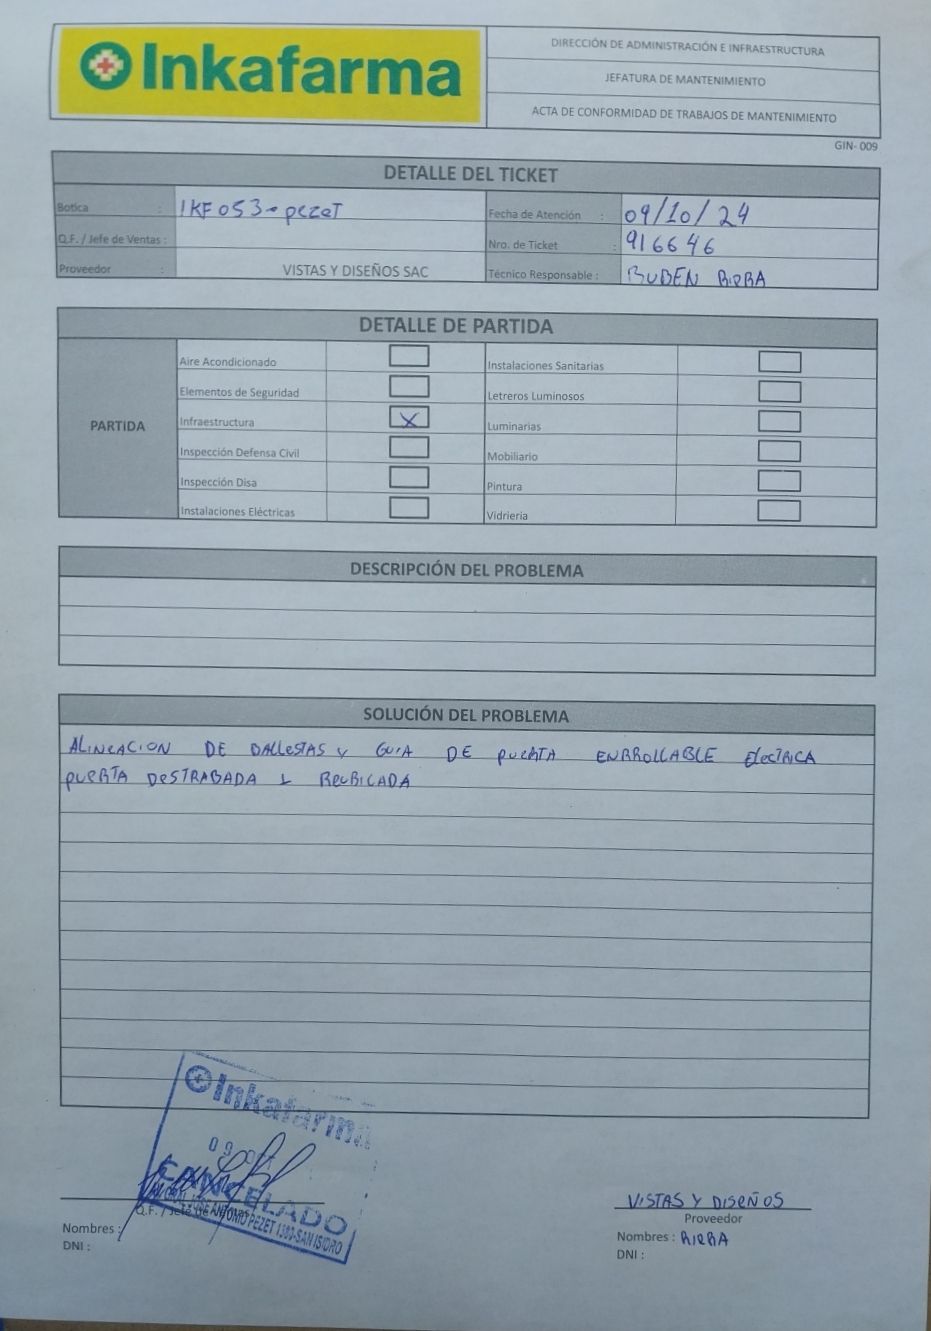 Inkafarma
DIRECCIÓN DE ADMINISTRACIÓN E INFRAESTRUCTURA
JEFATURA DE MANTENIMIENTO
ACTA DE CONFORMIDAD DE TRABAJOS DE MANTENIMIENTO
GIN- 009
DETALLE DEL TICKET
Botica : IKF 053 - PEZET
Fecha de Atención : 09/10/24
Q.F. / Jefe de Ventas :
Nro. de Ticket : 916646
Proveedor : VISTAS Y DISEÑOS SAC
Técnico Responsable : RUBEN RIRRA
DETALLE DE PARTIDA
PARTIDA
Aire Acondicionado
Instalaciones Sanitarias
Elementos de Seguridad
Letreros Luminosos
Infraestructura X
Luminarias
Inspección Defensa Civil
Mobiliario
Inspección Disa
Pintura
Instalaciones Eléctricas
Vidrieria
DESCRIPCIÓN DEL PROBLEMA
SOLUCIÓN DEL PROBLEMA
ALINEACION DE BALLESTAS Y GUIA DE PUERTA ENRROLLABLE ELECTRICA
PUERTA DESTRABADA Y REUBICADA
Inkafarma
CANCELADO
JOSE ANTONIO PEZET 1300-SAN ISIDRO
Q.F. / Jefe de Ventas
Nombres :
DNI :
VISTAS Y DISEÑOS
Proveedor
Nombres : RIRRA
DNI :